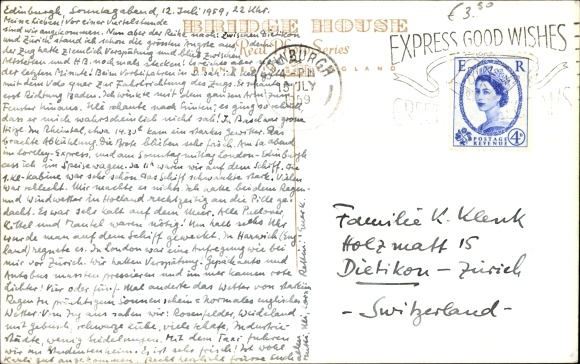 Edinburgh, Sonntagabend, 12. Juli 1959, 22 Uhr.
Meine Lieben! Vor einer Viertelstunde
sind wir angekommen. Nun aber der Reihe nach: Zwischen Dietikon
und Zürich stand ich schon die grössten Ängste aus, denn
der Zug hatte ziemlich Verspätung und blieb zwischen
Altstetten und HB nochmals stecken. Es reichte aber
der letzten Minute! Beim Vorbeifahren in
mit dem Velo quer zur Fahrtrichtung des Zugs. Er schaute
erst Richtung Baden. Ich winkte mit dem ganzen Arm zum
Fenster hinaus. Ueli schaute nach hinten; es ging so schnell,
dass er mich wahrscheinlich nicht sah! In Basel war grosse
Hitze. Im Rheintal, etwa 14.30 kam ein starkes Gewitter. Das
brachte Abkühlung. Die Brote blieben sehr frisch. Am Sa abend
im Loreley-Express, und am Sonntagmittag London-Edinburgh
ass ich im Speisewagen. Da waren wir auf dem Schiff. Die
1.Kl.-Kabine war sehr schön. Das Schiff schwankte stark. Vielen
war schlecht. Mir machte es nichts. Ich hatte bei dem Regen-
und Windwetter in Holland rechtzeitig an die Pille ge-
dacht. Es war sehr kalt auf dem Meer. Alle Pullover,
Kittel und Mantel waren nötig. Um halb sechs Uhr
wurde man auf dem Schiff geweckt. In Harwich (Eng-
land) regnete es. In London war eine Aufregung wie bei
mir vor Zürich. Wir hatten Verspätung. Gepäckauto und
Autobus mussten pressieren und immer kamen rote
Lichter! Für oder für! Mal änderte das Wetter von starkem
Regen zu prächtigem Sonnenschein = Normales englisches
Wetter. Vom Zug aus sahen wir: Rosenfelder, Weideland
mit Gebüsch, schwarze Kühe, viele Schafe, Industrie-
städte, wenig Siedelungen. Mit dem Taxi fuhren
wir ins Studentenheim. Es ist sehr frisch! Ich wohl
angekommen. Recht herzlich grüsst Euch
BRIDGE HOUSE
Real Photo Series
€ 3.50
EDINBURGH
PM
JLY
EXPRESS GOOD WISHES
E R
POSTAGE
REVENUE
4D
Familie K. Klenk
Holzmatt 15
Dietikon - Zürich
- Switzerland -